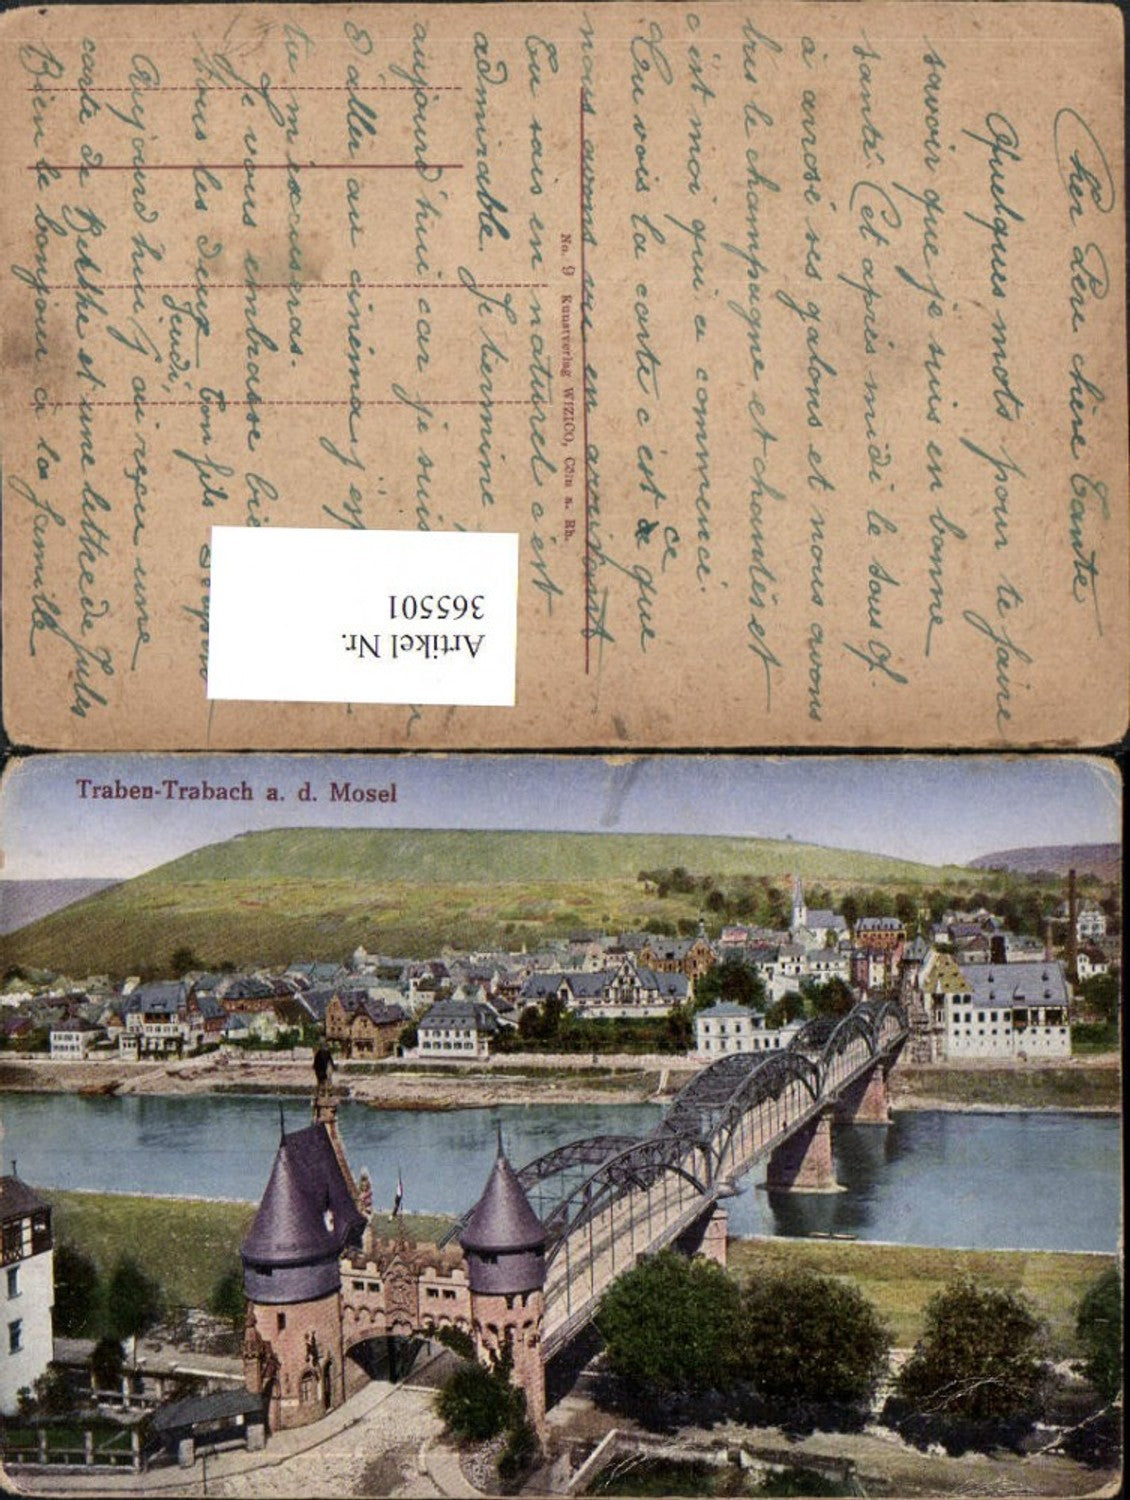 Cher Père chère Tante
Quelques mots pour te faire
savoir que je suis en bonne
santé. Cet après midi le sous of.
à arrosé ses galons et nous avons
bus le champagne et chantés et
c'est moi qui a commencé.
Tu vois la carte c'est ce que
nous avons vu en arrivant
Tu sais en naturel c'est
admirable. Je termine
aujourd'hui car je suis
d'aller au cinéma j'es
tu m'excuseras.
Je vous embrasse bie
tous les deux Ton fils
Jeudi,
Aujourd'hui j'ai reçu une
carte de Berthe et une lettre de Jules
Bien le bonjour à la famille
No. 9 Kunstverlag WIZICO, Cöln a. Rh.
Artikel Nr.
365501
Traben-Trabach a. d. Mosel